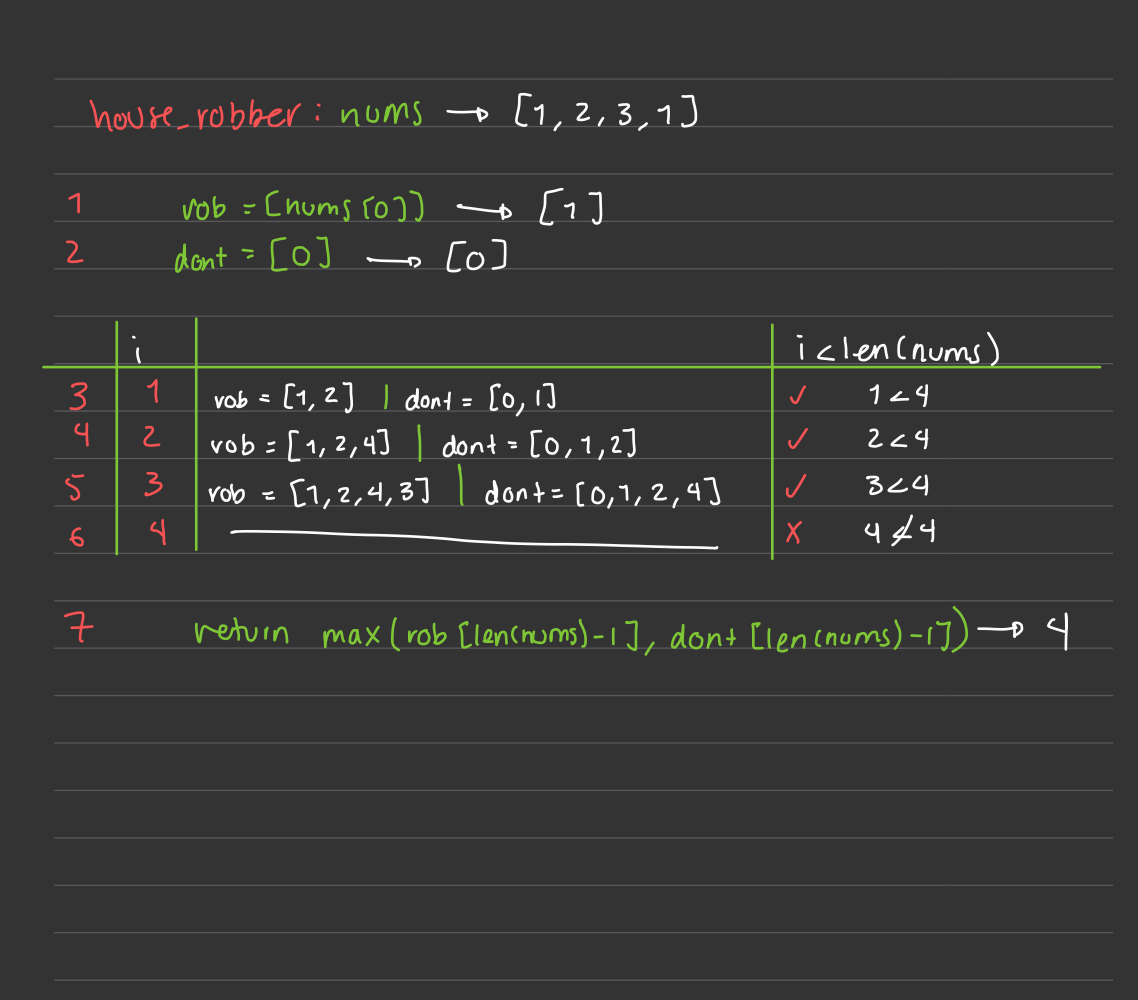 house_robber: nums → [1, 2, 3, 1]
1 rob = [nums[0]] → [1]
2 dont = [0] → [0]
i i < len(nums)
3 1 rob = [1, 2] | dont = [0, 1] ✓ 1 < 4
4 2 rob = [1, 2, 4] | dont = [0, 1, 2] ✓ 2 < 4
5 3 rob = [1, 2, 4, 3] | dont = [0, 1, 2, 4] ✓ 3 < 4
6 4 ✗ 4 ≮ 4
7 return max(rob[len(nums)-1], dont[len(nums)-1]) → 4